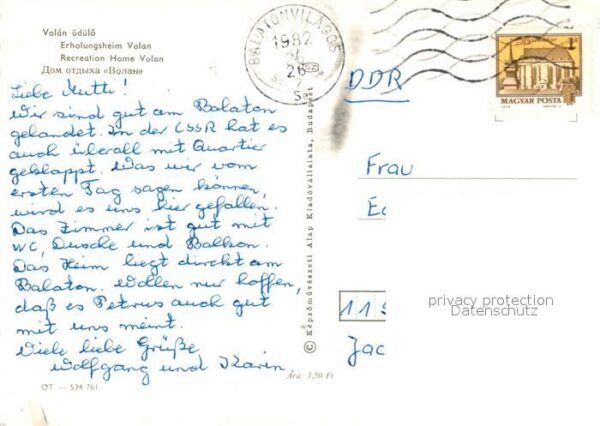 Volán üdülő
Erholungsheim Volan
Recreation Home Volan
Дом отдыха «Волан»
Liebe Mutti!
Wir sind gut am Balaton
gelandet. In der CSSR hat es
auch überall mit Quartier
geklappt. Was wir vom
ersten Tag sagen können,
wird es uns hier gefallen.
Das Zimmer ist gut mit
WC, Dusche und Balkon.
Das Heim liegt direkt am
Balaton. Wollen nur hoffen,
daß es Petrus auch gut
mit uns meint.
Viele liebe Grüße
Wolfgang und Karin
OT — 534 761.
Ára: 3,50 Ft
© Képzőművészeti Alap Kiadóvállalata, Budapest
BALATONVILÁGOS
1982
26
DDR
MAGYAR POSTA
Frau
Ec
115
Jac
privacy protection
Datenschutz